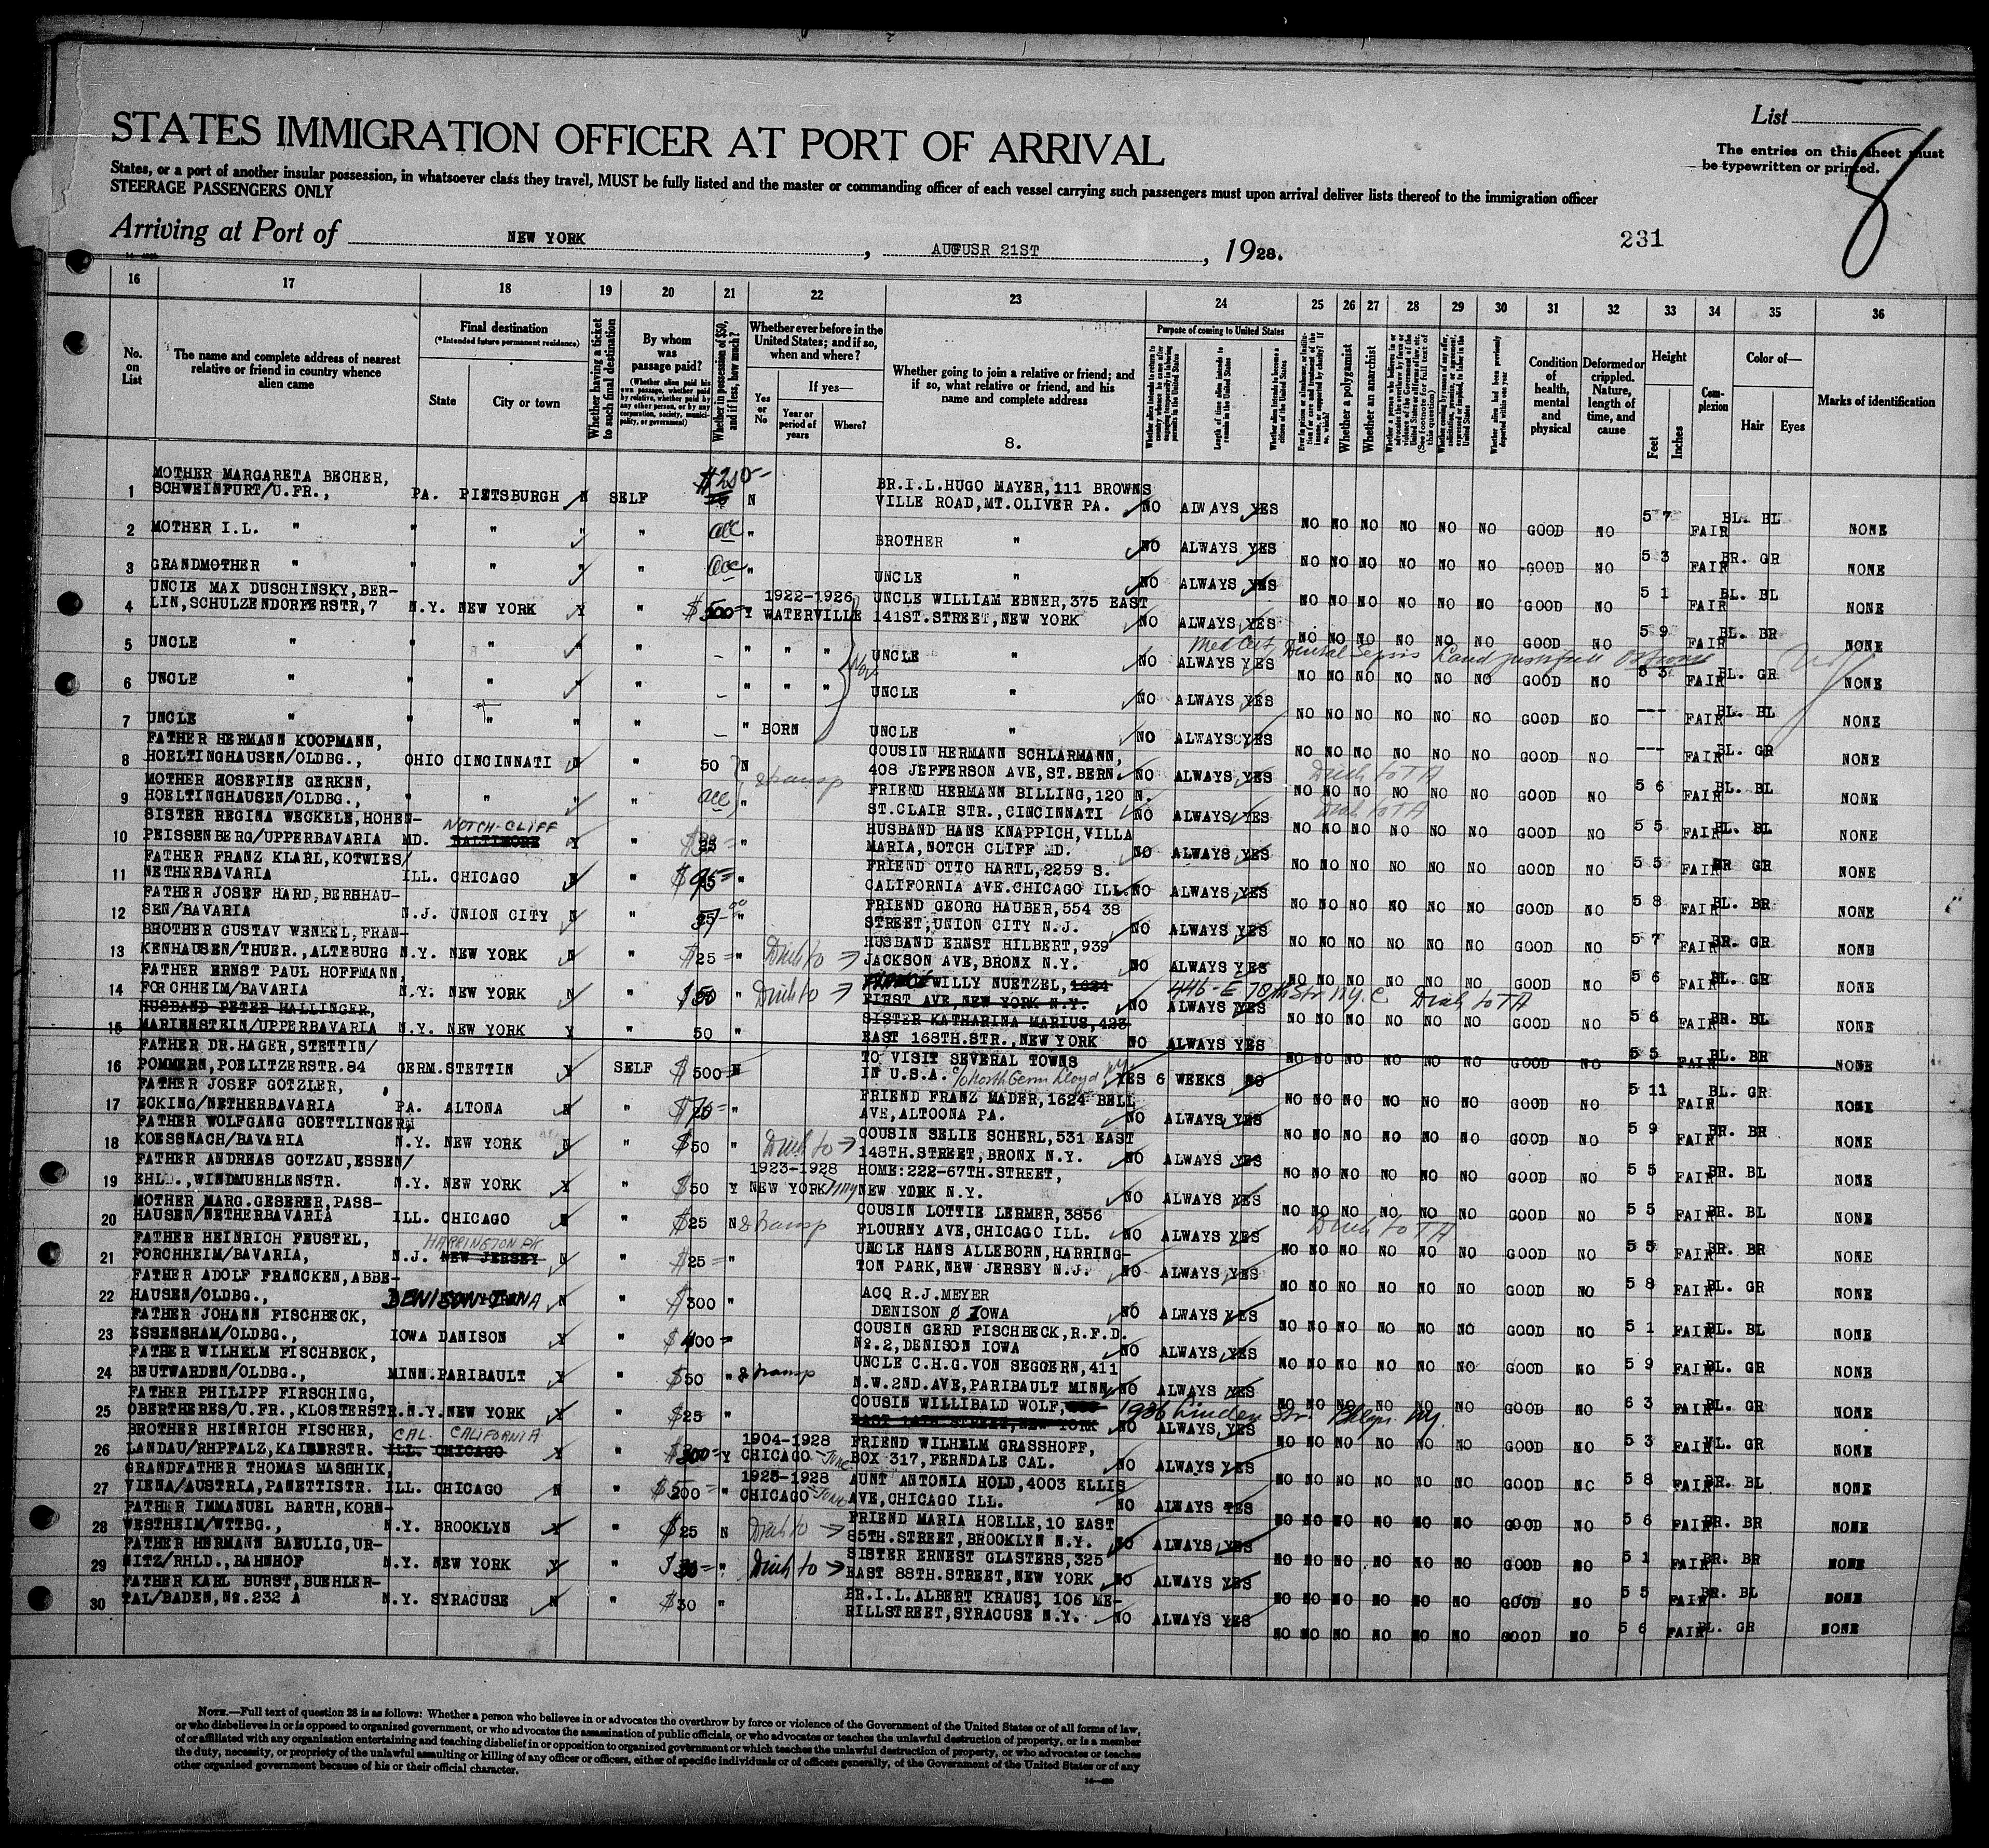 List
STATES IMMIGRATION OFFICER AT PORT OF ARRIVAL
The entries on this sheet must
be typewritten or printed.
8
States, or a port of another insular possession, in whatsoever class they travel, MUST be fully listed and the master or commanding officer of each vessel carrying such passengers must upon arrival deliver lists thereof to the immigration officer
STEERAGE PASSENGERS ONLY
Arriving at Port of NEW YORK, AUGUSR 21ST, 1928.
231
16 17 18 19 20 21 22 23 24 25 26 27 28 29 30 31 32 33 34 35 36
No. on List
The name and complete address of nearest relative or friend in country whence alien came
Final destination (*Intended future permanent residence)
State
City or town
Whether having a ticket to such final destination
By whom was passage paid?
(Whether alien paid his own passage, whether paid by relative, whether paid by any other person, or by any corporation, society, municipality, or government)
Whether in possession of $50, and if less, how much?
Whether ever before in the United States; and if so, when and where?
Yes or No
If yes—
Year or period of years
Where?
Whether going to join a relative or friend; and if so, what relative or friend, and his name and complete address
8.
Purpose of coming to United States
Length of time alien intends to remain in the United States
Whether a polygamist
Whether an anarchist
Condition of health, mental and physical
Deformed or crippled. Nature, length of time, and cause
Height
Feet
Inches
Complexion
Color of—
Hair
Eyes
Marks of identification
MOTHER MARGARETA BECHER,
1 SCHWEINFURT/U.FR., PA. PITTSBURGH N SELF $250- N BR.I.L.HUGO MAYER,111 BROWNS
VILLE ROAD,MT.OLIVER PA. NO ALWAYS YES NO NO NO NO NO NO GOOD NO 5 7 FAIR BL. BL NONE
2 MOTHER I.L. " " " " " acc " BROTHER " NO ALWAYS YES NO NO NO NO NO NO GOOD NO 5 3 FAIR BR. GR NONE
3 GRANDMOTHER " " " " " acc " UNCLE " NO ALWAYS YES NO NO NO NO NO NO GOOD NO 5 1 FAIR BL. BL NONE
UNCLE MAX DUSCHINSKY,BER- 1922-1926 UNCLE WILLIAM EBNER,375 EAST
4 LIN,SCHULZENDORFERSTR,7 N.Y. NEW YORK Y " $500 Y WATERVILLE 141ST.STREET,NEW YORK NO ALWAYS YES NO NO NO NO NO NO GOOD NO 5 9 FAIR BL. BR NONE
Med Cert Dental Sepsis
5 UNCLE " " " " - " " " UNCLE " NO ALWAYS YES NO NO NO NO NO NO GOOD NO 5 3 FAIR BL. GR NONE
6 UNCLE " " " " - " " " UNCLE " NO ALWAYS YES NO NO NO NO NO NO GOOD NO --- FAIR BL. BL NONE
7 UNCLE " " " " " - " BORN UNCLE " NO ALWAYS YES NO NO NO NO NO NO GOOD NO --- FAIR BL. GR NONE
FATHER HERMANN KOOPMANN, COUSIN HERMANN SCHLARMANN,
8 HOELTINGHAUSEN/OLDBG., OHIO CINCINNATI N " 50 N 408 JEFFERSON AVE,ST.BERN. NO ALWAYS YES NO NO NO NO NO NO GOOD NO 5 6 FAIR BL. BL NONE
MOTHER HOSEFINE GERKEN, FRIEND HERMANN BILLING,120 N.
9 HOELTINGHAUSEN/OLDBG., " " " acc " ST.CLAIR STR.,CINCINNATI NO ALWAYS YES NO NO NO NO NO NO GOOD NO 5 5 FAIR BL. BL NONE
SISTER REGINA WECKELE,HOHEN- NOTCH-CLIFF HUSBAND HANS KNAPPICH,VILLA
10 PEISSENBERG/UPPERBAVARIA MD. BALTIMORE Y " " MARIA,NOTCH CLIFF MD. NO ALWAYS YES NO NO NO NO NO NO GOOD NO 5 5 FAIR BR GR NONE
FATHER FRANZ KLARL,KOTWIES/ FRIEND OTTO HARTL,2259 S.
11 NETHERBAVARIA ILL. CHICAGO N " " CALIFORNIA AVE.CHICAGO ILL. NO ALWAYS YES NO NO NO NO NO NO GOOD NO 5 8 FAIR BL. BR NONE
FATHER JOSEF HARD,BERGHAU- FRIEND GEORG HAUBER,554 38
12 SEN/BAVARIA N.J. UNION CITY N " " STREET,UNION CITY N.J. NO ALWAYS YES NO NO NO NO NO NO GOOD NO 5 7 FAIR BR. GR NONE
BROTHER GUSTAV WENKEL,FRAN- HUSBAND ERNST HILBERT,939
13 KENHAUSEN/THUER.,ALTEBURG N.Y. NEW YORK N " $25 " JACKSON AVE,BRONX N.Y. NO ALWAYS YES NO NO NO NO NO NO GOOD NO 5 6 FAIR BL. GR NONE
FATHER ERNST PAUL HOFFMANN, WILLY NUETZEL,1624 446-E 70th Str N.Y.C
14 FORCHHEIM/BAVARIA N.Y. NEW YORK N " " FIRST AVE,NEW YORK N.Y. NO ALWAYS YES NO NO NO NO NO NO GOOD NO 5 6 FAIR BR. BL NONE
HUSBAND PETER HALLINGER, SISTER KATHARINA MARIUS,423
15 MARIENSTEIN/UPPERBAVARIA N.Y. NEW YORK Y 50 " EAST 168TH.STR.,NEW YORK NO ALWAYS YES NO NO NO NO NO NO GOOD NO 5 5 FAIR BL. BR NONE
FATHER DR.HAGER,STETTIN/ TO VISIT SEVERAL TOWNS
16 POMMERN,POELITZERSTR.84 GERM.STETTIN Y SELF $500 N IN U.S.A. c/o North Germ Lloyd N.Y. YES 6 WEEKS NO NO NO NO NO NO NO GOOD NO 5 11 FAIR BL. GR NONE
FATHER JOSEF GOTZLER, FRIEND FRANZ MADER,1624 BELL
17 ECKING/NETHERBAVARIA PA. ALTONA N " $70 " AVE,ALTOONA PA. NO ALWAYS YES NO NO NO NO NO NO GOOD NO 5 9 FAIR BR. BR NONE
FATHER WOLFGANG GOETTLINGER, COUSIN SELIE SCHERL,531 EAST
18 KOESSNACH/BAVARIA N.Y. NEW YORK N " $50 " 148TH.STREET,BRONX N.Y. NO ALWAYS YES NO NO NO NO NO NO GOOD NO 5 5 FAIR BR. BL NONE
FATHER ANDREAS GOTZAU,ESSEN/ 1923-1928 HOME:222-67TH.STREET,
19 EHLD.,WINDMUEHLENSTR. N.Y. NEW YORK Y " $50 Y NEW YORK NEW YORK N.Y. NO ALWAYS YES NO NO NO NO NO NO GOOD NO 5 5 FAIR BR. BL NONE
MOTHER MARG.GESERER,PASS- COUSIN LOTTIE LERMER,3856
20 HAUSEN/NETHERBAVARIA ILL. CHICAGO N " $25 N FLOURNY AVE,CHICAGO ILL. NO ALWAYS YES NO NO NO NO NO NO GOOD NO 5 5 FAIR BR. BR NONE
FATHER HEINRICH FEUSTEL, HARRINGTON PK UNCLE HANS ALLEBORN,HARRING-
21 FORCHHEIM/BAVARIA, N.J. NEW JERSEY N " $25 " TON PARK,NEW JERSEY N.J. NO ALWAYS YES NO NO NO NO NO NO GOOD NO 5 8 FAIR BL. GR NONE
FATHER ADOLF FRANCKEN,ABBE- ACQ R.J.MEYER
22 HAUSEN/OLDBG., DENISON N " $300 " DENISON IOWA NO ALWAYS YES NO NO NO NO NO NO GOOD NO 5 1 FAIR BL. BL NONE
FATHER JOHANN FISCHBECK, COUSIN GERD FISCHBECK,R.F.D.
23 ESSENSHAM/OLDBG., IOWA DANISON Y " $400 " Nº.2,DENISON IOWA NO ALWAYS YES NO NO NO NO NO NO GOOD NO 5 9 FAIR BL. GR NONE
FATHER WILHELM FISCHBECK, UNCLE C.H.G.VON SEGGERN,411
24 BEUTWARDEN/OLDBG., MINN.PARIBAULT Y " $50 " N.W.2ND.AVE,PARIBAULT MINN NO ALWAYS YES NO NO NO NO NO NO GOOD NO 6 3 FAIR BL. GR NONE
FATHER PHILIPP FIRSCHING, COUSIN WILLIBALD WOLF, 1936 Linden Str. Bklyn N.Y.
25 OBERTHERES/U.FR.,KLOSTERSTR.N.Y.NEW YORK Y " $25 " EAST 14TH STREET,NEW YORK NO ALWAYS YES NO NO NO NO NO NO GOOD NO 5 3 FAIR BL. GR NONE
BROTHER HEINRICH FISCHER, CAL. CALIFORNIA 1904-1928 FRIEND WILHELM GRASSHOFF,
26 LANDAU/RHPFALZ,KAISERSTR. ILL. CHICAGO Y " $300 Y CHICAGO June BOX 317,FERNDALE CAL. NO ALWAYS YES NO NO NO NO NO NO GOOD NO 5 8 FAIR BR. BL NONE
GRANDFATHER THOMAS MASCHIK, 1925-1928 AUNT ANTONIA HOLD,4003 ELLIS
27 VIENA/AUSTRIA,PANETTISTR. ILL. CHICAGO N " CHICAGO June AVE,CHICAGO ILL. NO ALWAYS YES NO NO NO NO NO NO GOOD NO 5 6 FAIR BR. BR NONE
FATHER IMMANUEL BARTH,KORN- FRIEND MARIA HOELLE,10 EAST
28 WESTHEIM/WTTBG., N.Y. BROOKLYN Y " $25 N 85TH.STREET,BROOKLYN N.Y. NO ALWAYS YES NO NO NO NO NO NO GOOD NO 5 1 FAIR BR. BR NONE
FATHER HERMANN BAEULIG,UR- SISTER ERNEST GLASTERS,325
29 MITZ/RHLD.,BAHNHOF N.Y. NEW YORK Y " $30 " EAST 88TH.STREET,NEW YORK NO ALWAYS YES NO NO NO NO NO NO GOOD NO 5 5 FAIR BR. BL NONE
FATHER KARL BURST,BUEHLER- BR.I.L.ALBERT KRAUS, 106 ME-
30 TAL/BADEN,Nº.232 A N.Y. SYRACUSE N " $30 " RILLSTREET,SYRACUSE N.Y. NO ALWAYS YES NO NO NO NO NO NO GOOD NO 5 6 FAIR BL. GR NONE
NOTE.—Full text of question 28 is as follows: Whether a person who believes in or advocates the overthrow by force or violence of the Government of the United States or of all forms of law,
or who disbelieves in or is opposed to organized government, or who advocates the assassination of public officials, or who advocates or teaches the unlawful destruction of property, or is a member
of or affiliated with any organization entertaining and teaching disbelief in or opposition to organized government or which teaches the unlawful destruction of property, or who advocates or teaches
the duty, necessity, or propriety of the unlawful assaulting or killing of any officer or officers, either of specific individuals or of officers generally, of the Government of the United States or of any
other organized government because of his or their official character.